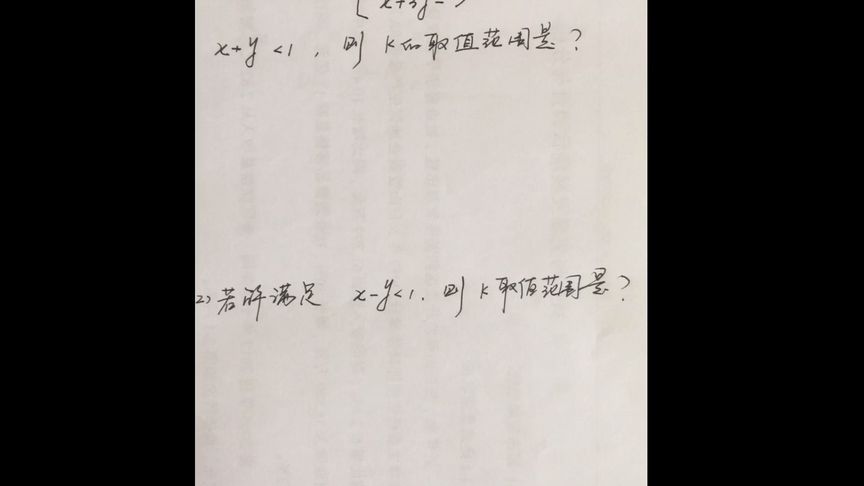 x+3y=
x+y<1，则 k的取值范围是？
2)若解满足 x-y<1. 则 k取值范围是？